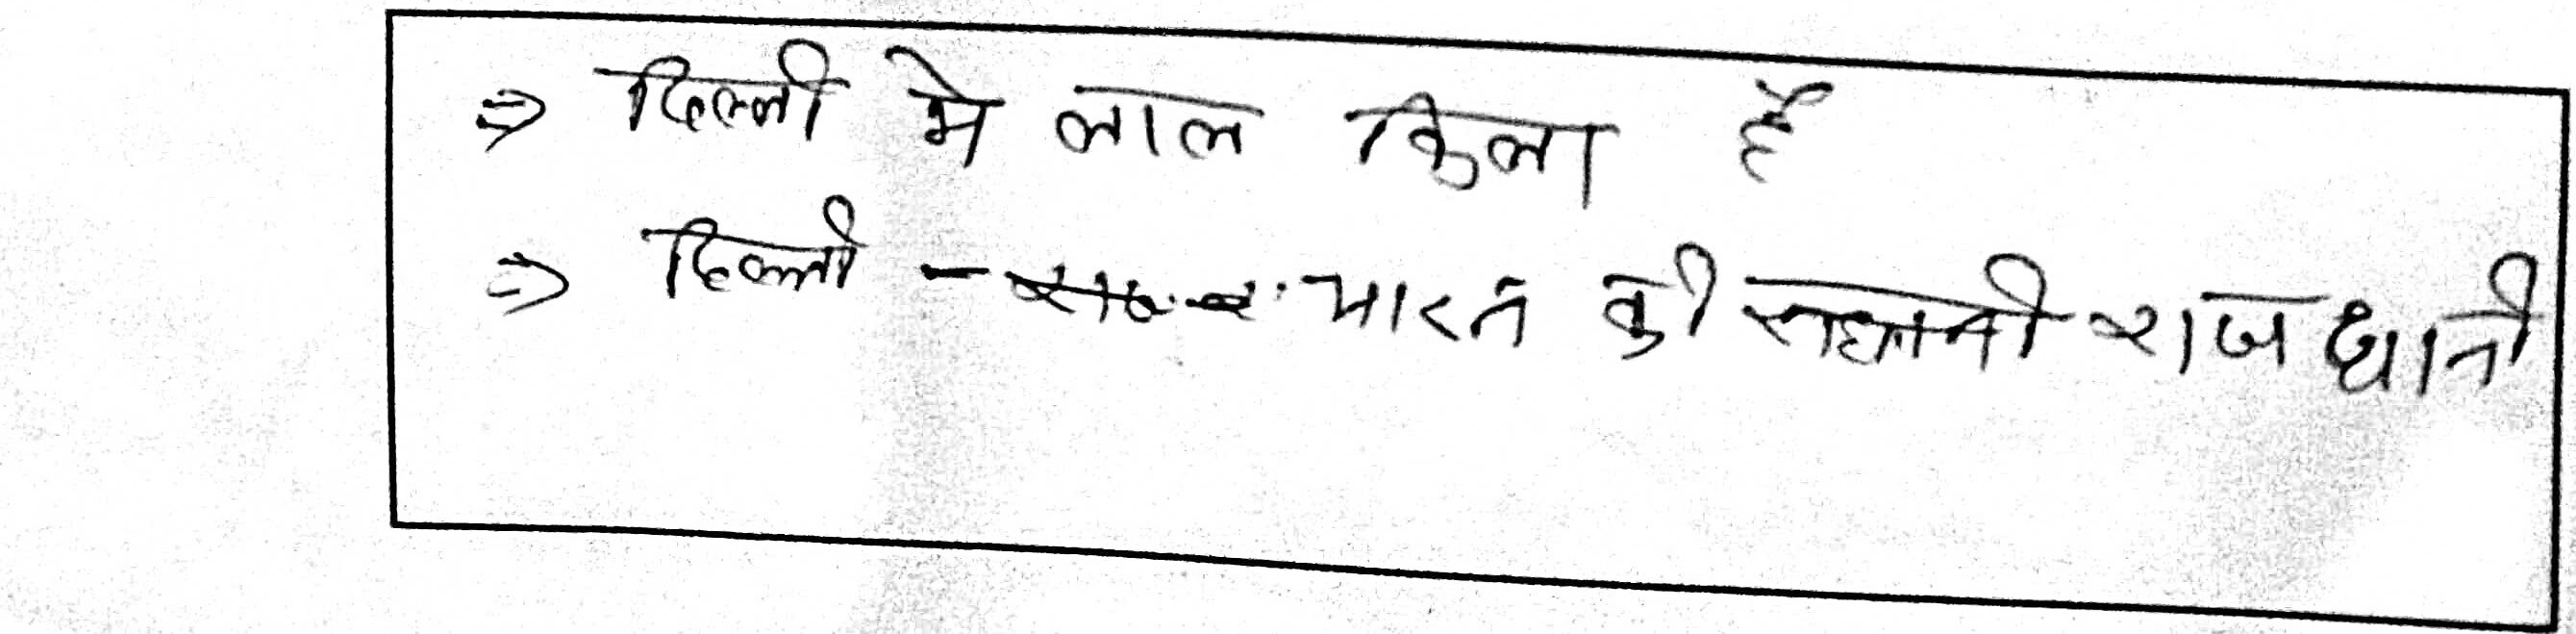 ⇒ दिल्ली मे लाल किला है
⇒ दिल्ली भारत की राजधानी